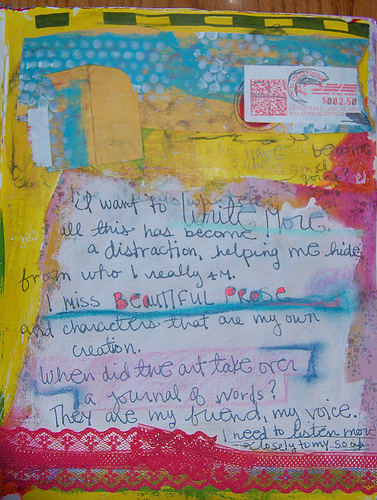 $002.50
become
I'd want to write more.
all this has become
a distraction, helping me hide
from who I really AM.
I miss BEAUTIFUL PROSE
and characters that are my own
creation.
When did the art take over
a journal of words?
They are my friend, my voice.
I need to listen more
closely to my soul...